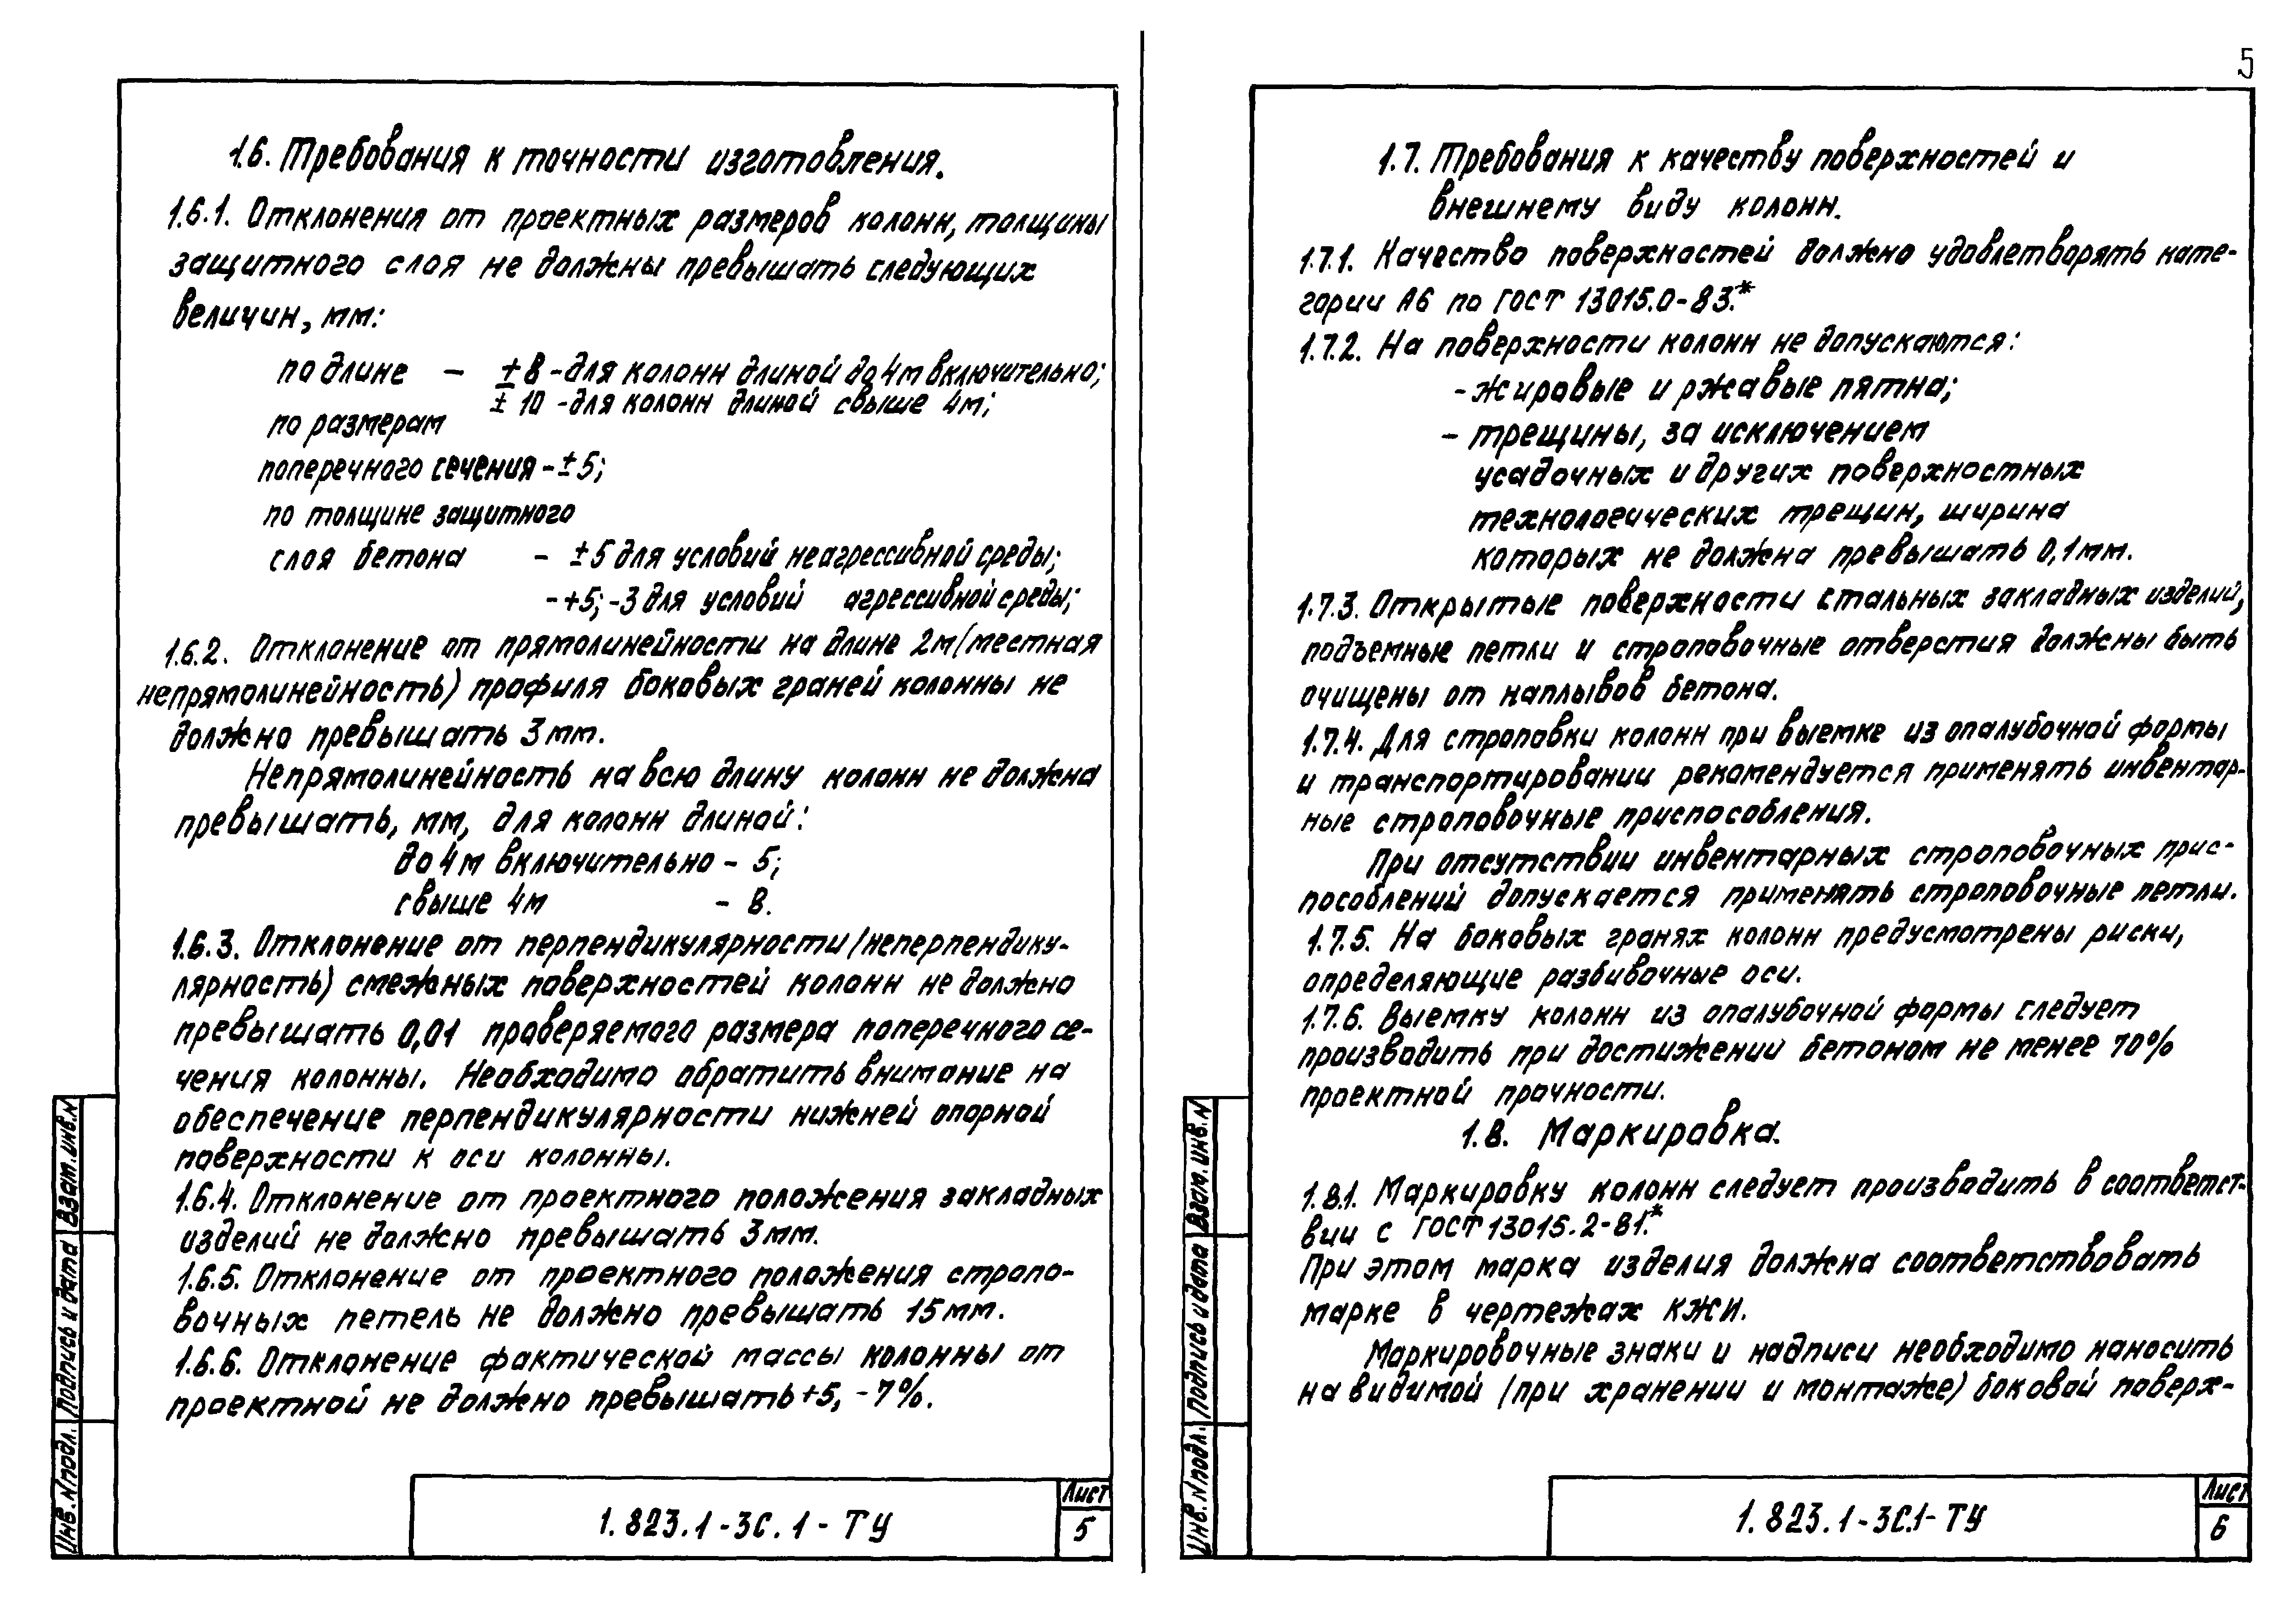 5
1.6. Требования к точности изготовления.
1.6.1. Отклонения от проектных размеров колонн, толщины
защитного слоя не должны превышать следующих
величин, мм:
по длине – ± 8 - для колонн длиной до 4м включительно;
± 10 - для колонн длиной свыше 4м;
по размерам
поперечного сечения - ± 5;
по толщине защитного
слоя бетона – ± 5 для условий неагрессивной среды;
- +5; -3 для условий агрессивной среды;
1.6.2. Отклонение от прямолинейности на длине 2м (местная
непрямолинейность) профиля боковых граней колонны не
должно превышать 3 мм.
Непрямолинейность на всю длину колонн не должна
превышать, мм, для колонн длиной:
до 4м включительно - 5;
свыше 4м - 8.
1.6.3. Отклонение от перпендикулярности (неперпендику-
лярность) смежных поверхностей колонн не должно
превышать 0,01 проверяемого размера поперечного се-
чения колонны. Необходимо обратить внимание на
обеспечение перпендикулярности нижней опорной
поверхности к оси колонны.
1.6.4. Отклонение от проектного положения закладных
изделий не должно превышать 3мм.
1.6.5. Отклонение от проектного положения стропо-
вочных петель не должно превышать 15мм.
1.6.6. Отклонение фактической массы колонны от
проектной не должно превышать +5, -7%.
Инв.N подл. Подпись и дата Взам.инв.N
1.823.1-3С.1-ТУ
Лист
5
1.7. Требования к качеству поверхностей и
внешнему виду колонн.
1.7.1. Качество поверхностей должно удовлетворять кате-
гории А6 по ГОСТ 13015.0-83.*
1.7.2. На поверхности колонн не допускаются:
- жировые и ржавые пятна;
- трещины, за исключением
усадочных и других поверхностных
технологических трещин, ширина
которых не должна превышать 0,1мм.
1.7.3. Открытые поверхности стальных закладных изделий,
подъемные петли и строповочные отверстия должны быть
очищены от наплывов бетона.
1.7.4. Для строповки колонн при выемке из опалубочной формы
и транспортировании рекомендуется применять инвентар-
ные строповочные приспособления.
При отсутствии инвентарных строповочных прис-
пособлений допускается применять строповочные петли.
1.7.5. На боковых гранях колонн предусмотрены риски,
определяющие разбивочные оси.
1.7.6. Выемку колонн из опалубочной формы следует
производить при достижении бетоном не менее 70%
проектной прочности.
1.8. Маркировка.
1.8.1. Маркировку колонн следует производить в соответст-
вии с ГОСТ 13015.2-81.*
При этом марка изделия должна соответствовать
марке в чертежах КЖИ.
Маркировочные знаки и надписи необходимо наносить
на видимой (при хранении и монтаже) боковой поверх-
Инв.N подл. Подпись и дата Взам.инв.N
1.823.1-3С.1-ТУ
Лист
6